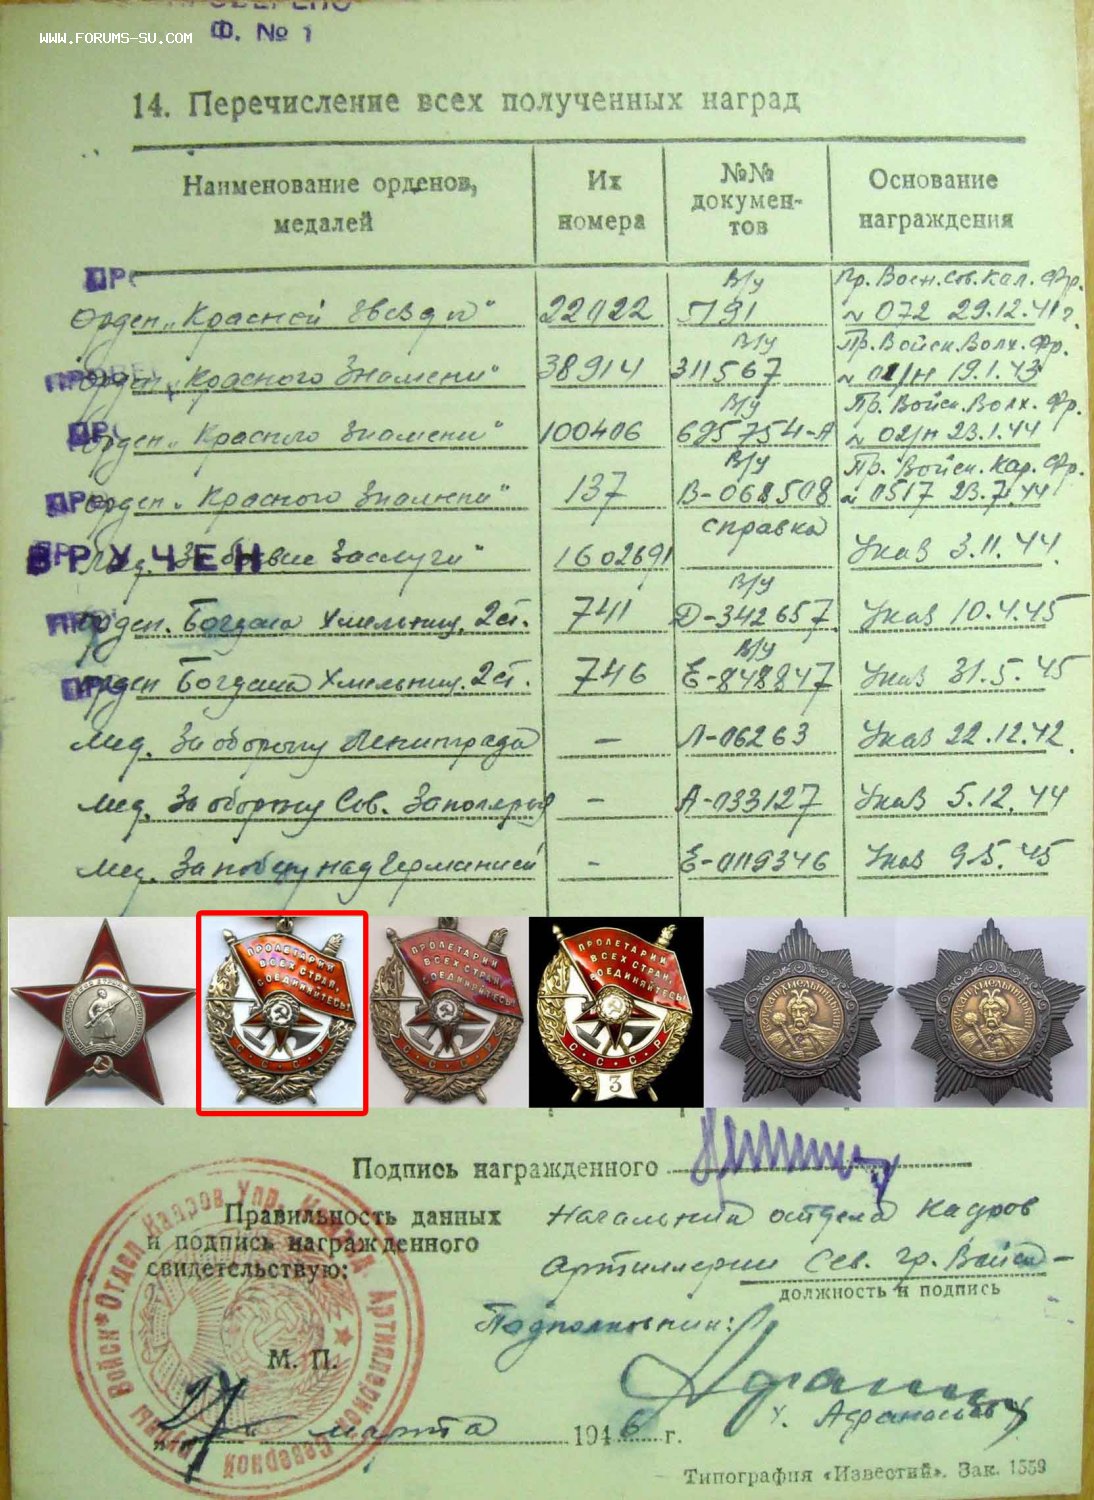 ПРОВЕРЕНО
Ф. № 1
WWW.FORUMS-SU.COM
14. Перечисление всех полученных наград
Наименование орденов, медалей
Их номера
№№ докумен-тов
Основание награждения
Орден „Красной Звезды" 22022 В/у П91 Пр. Воен. Сов. Кал. Фр. № 072 29.12.41г.
Орден „Красного Знамени" 38914 В/у 311567 Пр. Войск. Волх. Фр. № 01/н 19.1.43
Орден „Красного Знамени" 100406 В/у 695754-А Пр. Войск. Волх. Фр. № 02/н 23.1.44
Орден „Красного Знамени" 137 В/у В-068508 Пр. Войск. Кар. Фр. № 0517 23.7.44
ВРУЧЕН
Мед. „За боевые заслуги" 1602691 справка Указ 3.11.44.
Орден. Богдана Хмельниц. 2 ст. 741 В/у Д-342657 Указ 10.4.45
Орден Богдана Хмельниц. 2 ст. 746 В/у Е-848847 Указ 31.5.45
Мед. За оборону Ленинграда — Л-06263 Указ 22.12.42.
Мед. За оборону Сов. Заполярья — А-033127 Указ 5.12.44
Мед. За победу над Германией - Е-0119346 Указ 9.5.45
ПРОЛЕТАРИИ ВСЕХ СТРАН, СОЕДИНЯЙТЕСЬ!
СССР
ПРОЛЕТАРИИ ВСЕХ СТРАН, СОЕДИНЯЙТЕСЬ!
СССР
ПРОЛЕТАРИИ ВСЕХ СТРАН, СОЕДИНЯЙТЕСЬ!
СССР
3
Подпись награжденного
Правильность данных
и подпись награжденного
свидетельствую:
Начальник отдела кадров
Артиллерии Сев. гр. Войск-
должность и подпись
Подполковник:
Афанасьев
М. П.
„27" марта 1946 г.
Отдел Кадров Упр. Команд. Артиллерией Северной Группы Войск
Типография «Известий». Зак. 1559